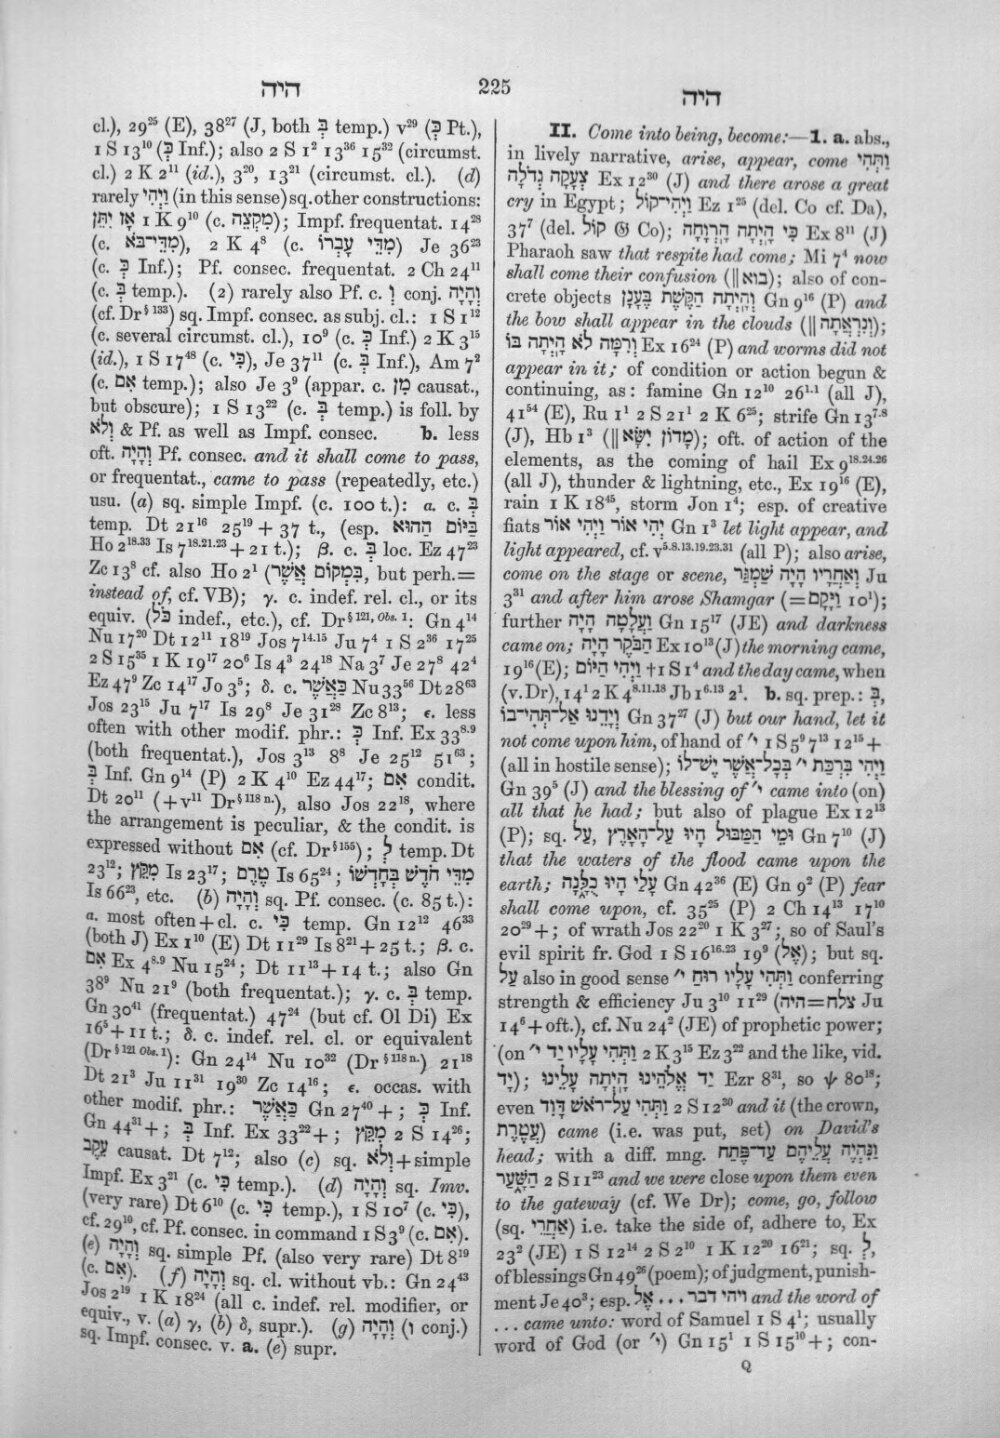 היה
225
היה
cl.), 29²⁵ (E), 38²⁷ (J, both בְּ temp.) v²⁹ (כְּ Pt.),
1 S 13¹⁰ (כְּ Inf.); also 2 S 1² 13³⁶ 15³² (circumst.
cl.) 2 K 2¹¹ (id.), 3²⁰, 13²¹ (circumst. cl.). (d)
rarely וַיְהִי (in this sense) sq. other constructions:
אָז יִתֵּן 1 K 9¹⁰ (c. מִקְצֵה); Impf. frequentat. 14²⁸
(c. מִדֵּי־בֹא), 2 K 4⁸ (c. מִדֵּי עָבְרוֹ) Je 36²³
(c. כְּ Inf.); Pf. consec. frequentat. 2 Ch 24¹¹
(c. בְּ temp.). (2) rarely also Pf. c. וְ conj. וְהָיָה
(cf. Dr§ ¹³³) sq. Impf. consec. as subj. cl.: 1 S 1¹²
(c. several circumst. cl.), 10⁹ (c. כְּ Inf.) 2 K 3¹⁵
(id.), 1 S 17⁴⁸ (c. כִּי), Je 37¹¹ (c. בְּ Inf.), Am 7²
(c. אִם temp.); also Je 3⁹ (appar. c. מִן causat.,
but obscure); 1 S 13²² (c. בְּ temp.) is foll. by
וְלֹא & Pf. as well as Impf. consec. b. less
oft. וְהָיָה Pf. consec. and it shall come to pass,
or frequentat., came to pass (repeatedly, etc.)
usu. (a) sq. simple Impf. (c. 100 t.): α. c. בְּ
temp. Dt 21¹⁶ 25¹⁹ + 37 t., (esp. בַּיּוֹם הַהוּא
Ho 2¹⁸·³³ Is 7¹⁸·²¹·²³ + 21 t.); β. c. בְּ loc. Ez 47²³
Zc 13⁸ cf. also Ho 2¹ (בִּמְקוֹם אֲשֶׁר, but perh.=
instead of, cf. VB); γ. c. indef. rel. cl., or its
equiv. (כֹּל indef., etc.), cf. Dr§ ¹²¹, Obs. ¹: Gn 4¹⁴
Nu 17²⁰ Dt 12¹¹ 18¹⁹ Jos 7¹⁴·¹⁵ Ju 7⁴ 1 S 2³⁶ 17²⁵
2 S 15³⁵ 1 K 19¹⁷ 20⁶ Is 4³ 24¹⁸ Na 3⁷ Je 27⁸ 42⁴
Ez 47⁹ Zc 14¹⁷ Jo 3⁵; δ. c. כַּאֲשֶׁר Nu 33⁵⁶ Dt 28⁶³
Jos 23¹⁵ Ju 7¹⁷ Is 29⁸ Je 31²⁸ Zc 8¹³; ε. less
often with other modif. phr.: כְּ Inf. Ex 33⁸·⁹
(both frequentat.), Jos 3¹³ 8⁸ Je 25¹² 51⁶³;
בְּ Inf. Gn 9¹⁴ (P) 2 K 4¹⁰ Ez 44¹⁷; אִם condit.
Dt 20¹¹ (+v¹¹ Dr§ ¹¹⁸ ⁿ·), also Jos 22¹⁸, where
the arrangement is peculiar, & the condit. is
expressed without אִם (cf. Dr§ ¹⁵⁵); לְ temp. Dt
23¹²; מִקֵּץ Is 23¹⁷; טֶרֶם Is 65²⁴; מִדֵּי חֹדֶשׁ בְּחָדְשׁוֹ
Is 66²³, etc. (b) וְהָיָה sq. Pf. consec. (c. 85 t.):
α. most often + cl. c. כִּי temp. Gn 12¹² 46³³
(both J) Ex 1¹⁰ (E) Dt 11²⁹ Is 8²¹ + 25 t.; β. c.
אִם Ex 4⁸·⁹ Nu 15²⁴; Dt 11¹³ + 14 t.; also Gn
38⁹ Nu 21⁹ (both frequentat.); γ. c. בְּ temp.
Gn 30⁴¹ (frequentat.) 47²⁴ (but cf. Ol Di) Ex
16⁵ + 11 t.; δ. c. indef. rel. cl. or equivalent
(Dr§ ¹²¹ Obs. ¹): Gn 24¹⁴ Nu 10³² (Dr§ ¹¹⁸ ⁿ·) 21¹⁸
Dt 21³ Ju 11³¹ 19³⁰ Zc 14¹⁶; ε. occas. with
other modif. phr.: כַּאֲשֶׁר Gn 27⁴⁰ + ; כְּ Inf.
Gn 44³¹ + ; בְּ Inf. Ex 33²² + ; מִקֵּץ 2 S 14²⁶;
עֵקֶב causat. Dt 7¹²; also (c) sq. וְלֹא + simple
Impf. Ex 3²¹ (c. כִּי temp.). (d) וְהָיָה sq. Imv.
(very rare) Dt 6¹⁰ (c. כִּי temp.), 1 S 10⁷ (c. כִּי),
cf. 29¹⁰, cf. Pf. consec. in command 1 S 3⁹ (c. אִם).
(e) וְהָיָה sq. simple Pf. (also very rare) Dt 8¹⁹
(c. אִם). (f) וְהָיָה sq. cl. without vb.: Gn 24⁴³
Jos 2¹⁹ 1 K 18²⁴ (all c. indef. rel. modifier, or
equiv., v. (a) γ, (b) δ, supr.). (g) וְהָיָה (ו conj.)
sq. Impf. consec. v. a. (e) supr.
II. Come into being, become:—1. a. abs.,
in lively narrative, arise, appear, come וַתְּהִי
צְעָקָה גְדֹלָה Ex 12³⁰ (J) and there arose a great
cry in Egypt; וַיְהִי־קוֹל Ez 1²⁵ (del. Co cf. Da),
37⁷ (del. קוֹל 𝔊 Co); כִּי הָיְתָה הָרְוָחָה Ex 8¹¹ (J)
Pharaoh saw that respite had come; Mi 7⁴ now
shall come their confusion (‖בוא); also of con-
crete objects וְהָיְתָה הַקֶּשֶׁת בֶּעָנָן Gn 9¹⁶ (P) and
the bow shall appear in the clouds (‖וְנִרְאֲתָה);
וְרִמָּה לֹא הָיְתָה בּוֹ Ex 16²⁴ (P) and worms did not
appear in it; of condition or action begun &
continuing, as: famine Gn 12¹⁰ 26¹·¹ (all J),
41⁵⁴ (E), Ru 1¹ 2 S 21¹ 2 K 6²⁵; strife Gn 13⁷·⁸
(J), Hb 1³ (‖מָדוֹן יִשָּׂא); oft. of action of the
elements, as the coming of hail Ex 9¹⁸·²⁴·²⁶
(all J), thunder & lightning, etc., Ex 19¹⁶ (E),
rain 1 K 18⁴⁵, storm Jon 1⁴; esp. of creative
fiats יְהִי אוֹר וַיְהִי אוֹר Gn 1³ let light appear, and
light appeared, cf. v⁵·⁸·¹³·¹⁹·²³·³¹ (all P); also arise,
come on the stage or scene, וְאַחֲרָיו הָיָה שַׁמְגַּר Ju
3³¹ and after him arose Shamgar (=וַיָּקָם 10¹);
further וַעֲלָטָה הָיָה Gn 15¹⁷ (JE) and darkness
came on; הַבֹּקֶר הָיָה Ex 10¹³ (J) the morning came,
19¹⁶ (E); וַיְהִי הַיּוֹם †1 S 1⁴ and the day came, when
(v. Dr), 14¹ 2 K 4⁸·¹¹·¹⁸ Jb 1⁶·¹³ 2¹. b. sq. prep.: בְּ,
וְיָדֵנוּ אַל־תְּהִי־בוֹ Gn 37²⁷ (J) but our hand, let it
not come upon him, of hand of י׳ 1 S 5⁹ 7¹³ 12¹⁵ +
(all in hostile sense); וַיְהִי בִּרְכַּת י׳ בְּכָל־אֲשֶׁר יֶשׁ־לוֹ
Gn 39⁵ (J) and the blessing of י׳ came into (on)
all that he had; but also of plague Ex 12¹³
(P); sq. עַל, וּמֵי הַמַּבּוּל הָיוּ עַל־הָאָרֶץ Gn 7¹⁰ (J)
that the waters of the flood came upon the
earth; עָלַי הָיוּ כֻלָּנָה Gn 42³⁶ (E) Gn 9² (P) fear
shall come upon, cf. 35²⁵ (P) 2 Ch 14¹³ 17¹⁰
20²⁹ + ; of wrath Jos 22²⁰ 1 K 3²⁷; so of Saul's
evil spirit fr. God 1 S 16¹⁶·²³ 19⁹ (אֶל); but sq.
עַל also in good sense וַתְּהִי עָלָיו רוּחַ י׳ conferring
strength & efficiency Ju 3¹⁰ 11²⁹ (היה=צלח Ju
14⁶ + oft.), cf. Nu 24² (JE) of prophetic power;
(on וַתְּהִי עָלָיו יַד י׳ 2 K 3¹⁵ Ez 3²² and the like, vid.
יָד); יַד אֱלֹהֵינוּ הָיְתָה עָלֵינוּ Ezr 8³¹, so ψ 80¹⁸;
even וַתְּהִי עַל־רֹאשׁ דָּוִד 2 S 12³⁰ and it (the crown,
עֲטֶרֶת) came (i.e. was put, set) on David's
head; with a diff. mng. וַנִּהְיֶה עֲלֵיהֶם עַד־פֶּתַח
הַשָּׁעַר 2 S 11²³ and we were close upon them even
to the gateway (cf. We Dr); come, go, follow
(sq. אַחֲרֵי) i.e. take the side of, adhere to, Ex
23² (JE) 1 S 12¹⁴ 2 S 2¹⁰ 1 K 12²⁰ 16²¹; sq. לְ,
of blessings Gn 49²⁶ (poem); of judgment, punish-
ment Je 40³; esp. ויהי דבר ... אֶל and the word of
... came unto: word of Samuel 1 S 4¹; usually
word of God (or י׳) Gn 15¹ 1 S 15¹⁰ + ; con-
Q